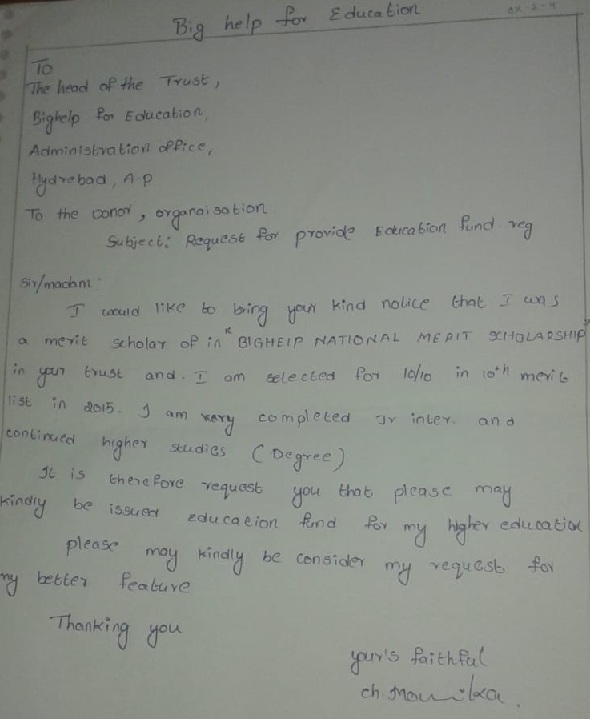 Big help for Education
To
The head of the Trust,
Bighelp for Education,
Administration office,
Hydrebad, A.P
To the donor, organaisation
Subject: Request for provide Education fund reg
Sir/madam:
I would like to bring your kind notice that I was
a merit scholar of in "BIGHELP NATIONAL MERIT SCHOLARSHIP
in your trust and. I am selected for 10/10 in 10th merit
list in 2015. I am very completed Jr inter. and
continued higher studies (Degree)
It is therefore request you that please may
kindly be issued education fund for my higher education
please may kindly be consider my request for
my better feature
Thanking you
your's faithful
ch. Mounika.